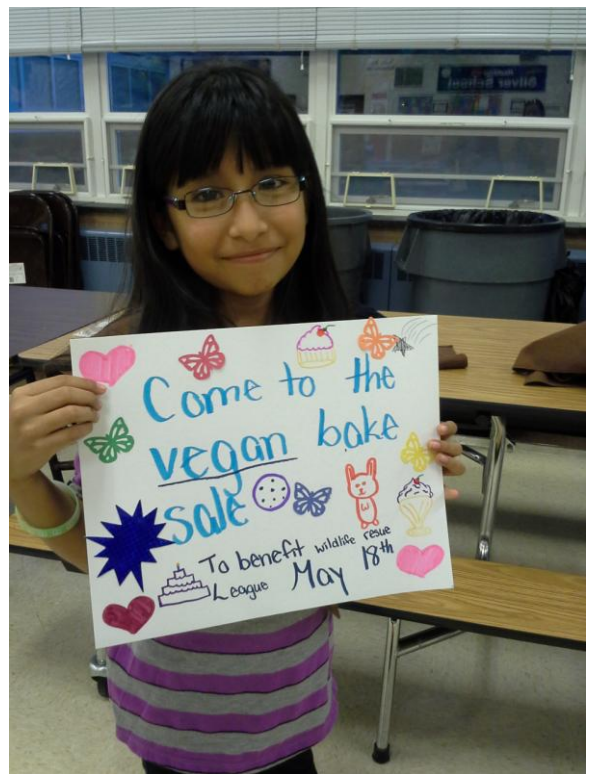 Come to the
vegan bake
sale
To benefit wildlife resue
League May 18th
Silver School